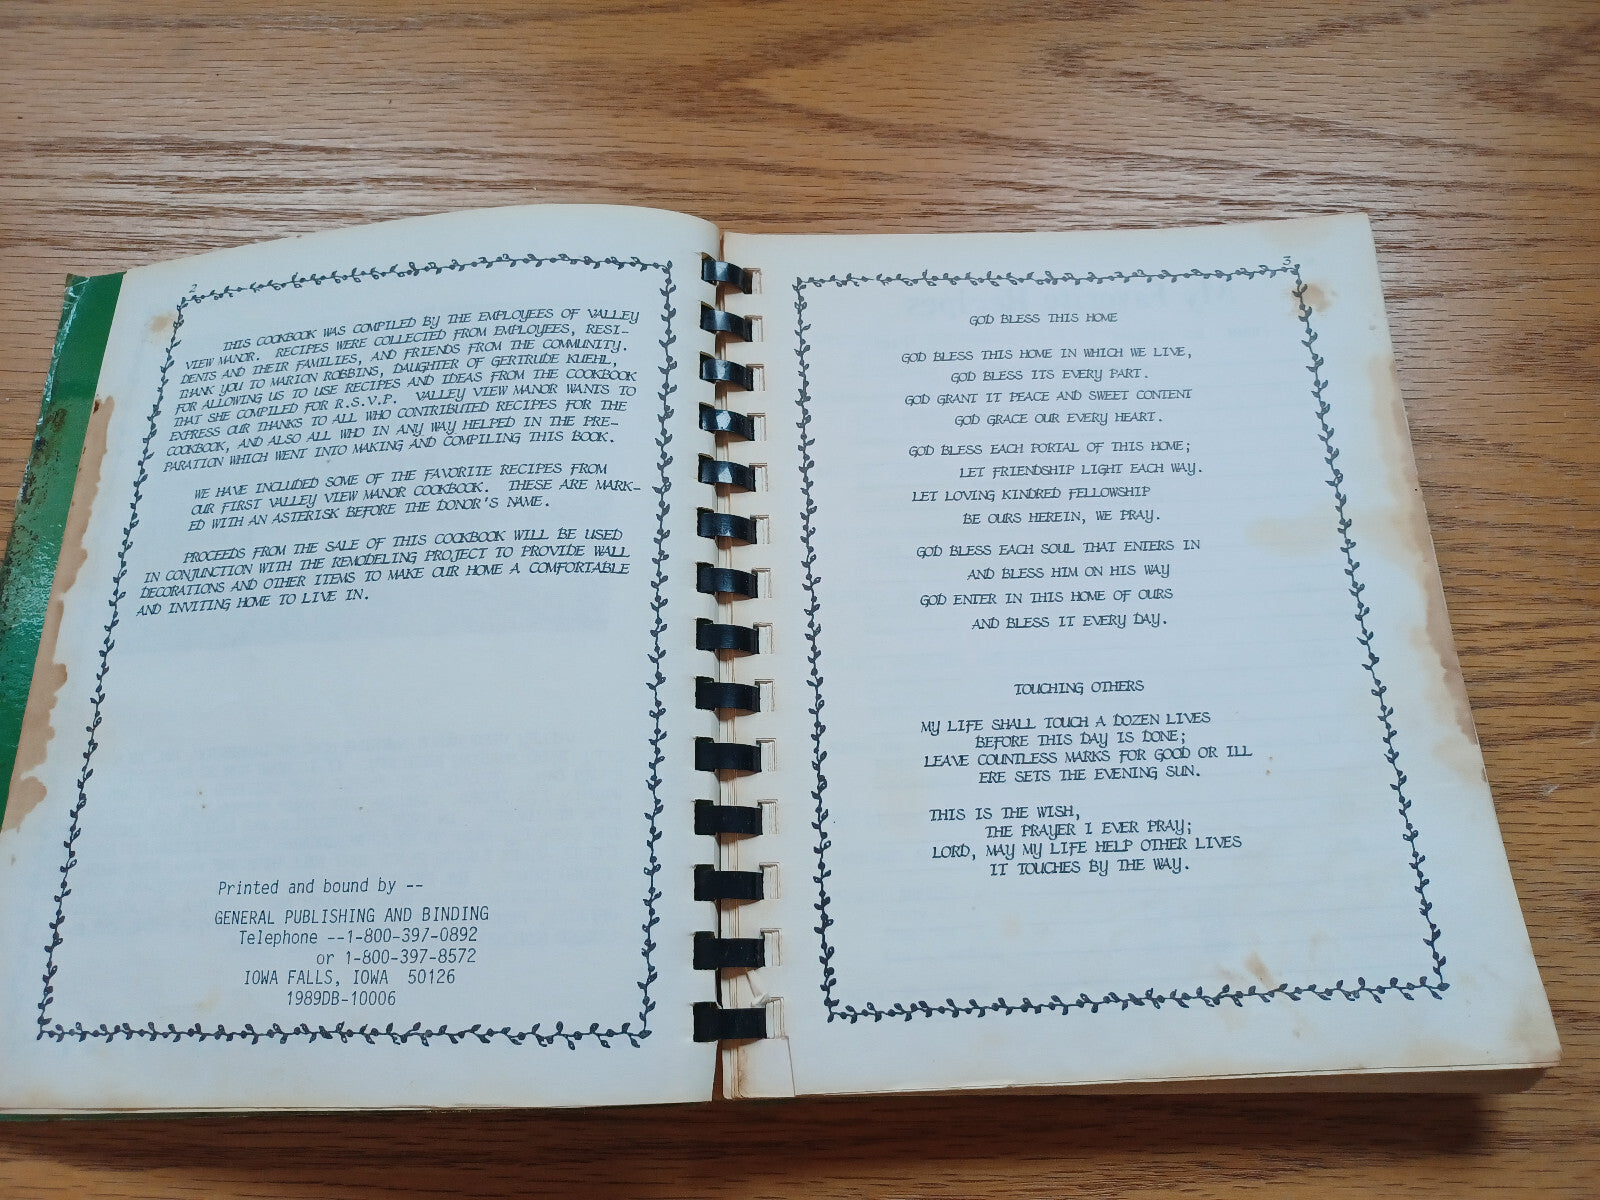 2
THIS COOKBOOK WAS COMPILED BY THE EMPLOYEES OF VALLEY
VIEW MANOR. RECIPES WERE COLLECTED FROM EMPLOYEES, RESI-
DENTS AND THEIR FAMILIES, AND FRIENDS FROM THE COMMUNITY.
THANK YOU TO MARION ROBBINS, DAUGHTER OF GERTRUDE KUEHL,
FOR ALLOWING US TO USE RECIPES AND IDEAS FROM THE COOKBOOK
THAT SHE COMPILED FOR R.S.V.P. VALLEY VIEW MANOR WANTS TO
EXPRESS OUR THANKS TO ALL WHO CONTRIBUTED RECIPES FOR THE
COOKBOOK, AND ALSO ALL WHO IN ANY WAY HELPED IN THE PRE-
PARATION WHICH WENT INTO MAKING AND COMPILING THIS BOOK.
WE HAVE INCLUDED SOME OF THE FAVORITE RECIPES FROM
OUR FIRST VALLEY VIEW MANOR COOKBOOK. THESE ARE MARK-
ED WITH AN ASTERISK BEFORE THE DONOR'S NAME.
PROCEEDS FROM THE SALE OF THIS COOKBOOK WILL BE USED
IN CONJUNCTION WITH THE REMODELING PROJECT TO PROVIDE WALL
DECORATIONS AND OTHER ITEMS TO MAKE OUR HOME A COMFORTABLE
AND INVITING HOME TO LIVE IN.
Printed and bound by --
GENERAL PUBLISHING AND BINDING
Telephone --1-800-397-0892
or 1-800-397-8572
IOWA FALLS, IOWA 50126
1989DB-10006
3
GOD BLESS THIS HOME
GOD BLESS THIS HOME IN WHICH WE LIVE,
GOD BLESS ITS EVERY PART.
GOD GRANT IT PEACE AND SWEET CONTENT
GOD GRACE OUR EVERY HEART.
GOD BLESS EACH PORTAL OF THIS HOME;
LET FRIENDSHIP LIGHT EACH WAY.
LET LOVING KINDRED FELLOWSHIP
BE OURS HEREIN, WE PRAY.
GOD BLESS EACH SOUL THAT ENTERS IN
AND BLESS HIM ON HIS WAY
GOD ENTER IN THIS HOME OF OURS
AND BLESS IT EVERY DAY.
TOUCHING OTHERS
MY LIFE SHALL TOUCH A DOZEN LIVES
BEFORE THIS DAY IS DONE;
LEAVE COUNTLESS MARKS FOR GOOD OR ILL
ERE SETS THE EVENING SUN.
THIS IS THE WISH,
THE PRAYER I EVER PRAY;
LORD, MAY MY LIFE HELP OTHER LIVES
IT TOUCHES BY THE WAY.